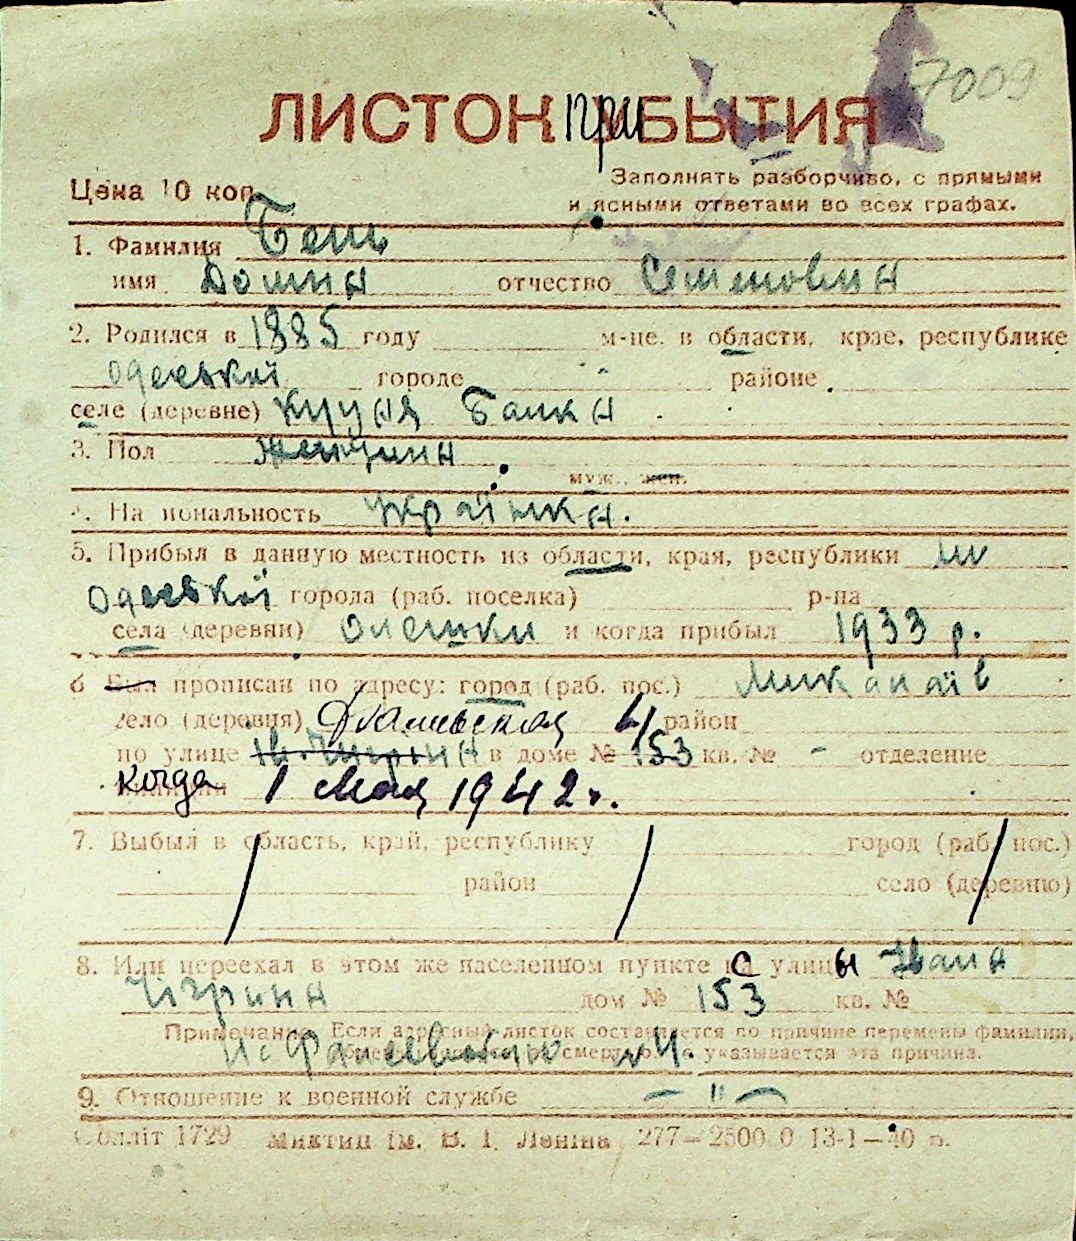 7009
ЛИСТОК прибЫТИЯ
Цена 10 коп.
Заполнять разборчиво, с прямыми
и ясными ответами во всех графах.
1. Фамилия Бень
имя Домна отчество Семеновна
2. Родился в 1885 году м-це. в области, крае, республике
Одеськой городе районе
селе (деревне) Балка
3. Пол женщина
муж., жен.
4. Национальность українка.
5. Прибыл в данную местность из области, края, республики
Одеської города (раб. поселка) р-на
села (деревни) Олешки и когда прибыл 1933 р.
6 Был прописан по адресу: город (раб. пос.) Миколаїв
село (деревня) 4 район
по улице Ив. Чигрина в доме № 153 кв. № - отделение
милиции когда 1 Мая 1942 г.
7. Выбыл в область, край, республику город (раб. пос.)
район село (деревню)
8. Или переехал в этом же населенном пункте с улицы Ивана
Чігрина дом № 153 кв. №
Примечание. Если адресный листок составляется по причине перемены фамилии,
смерти, указывается эта причина.
на Фалеевскую №4
9. Отношение к военной службе — " —
Облліт 1729 Миктип ім. В. І. Леніна 277—2500 0 13-1—40 р.